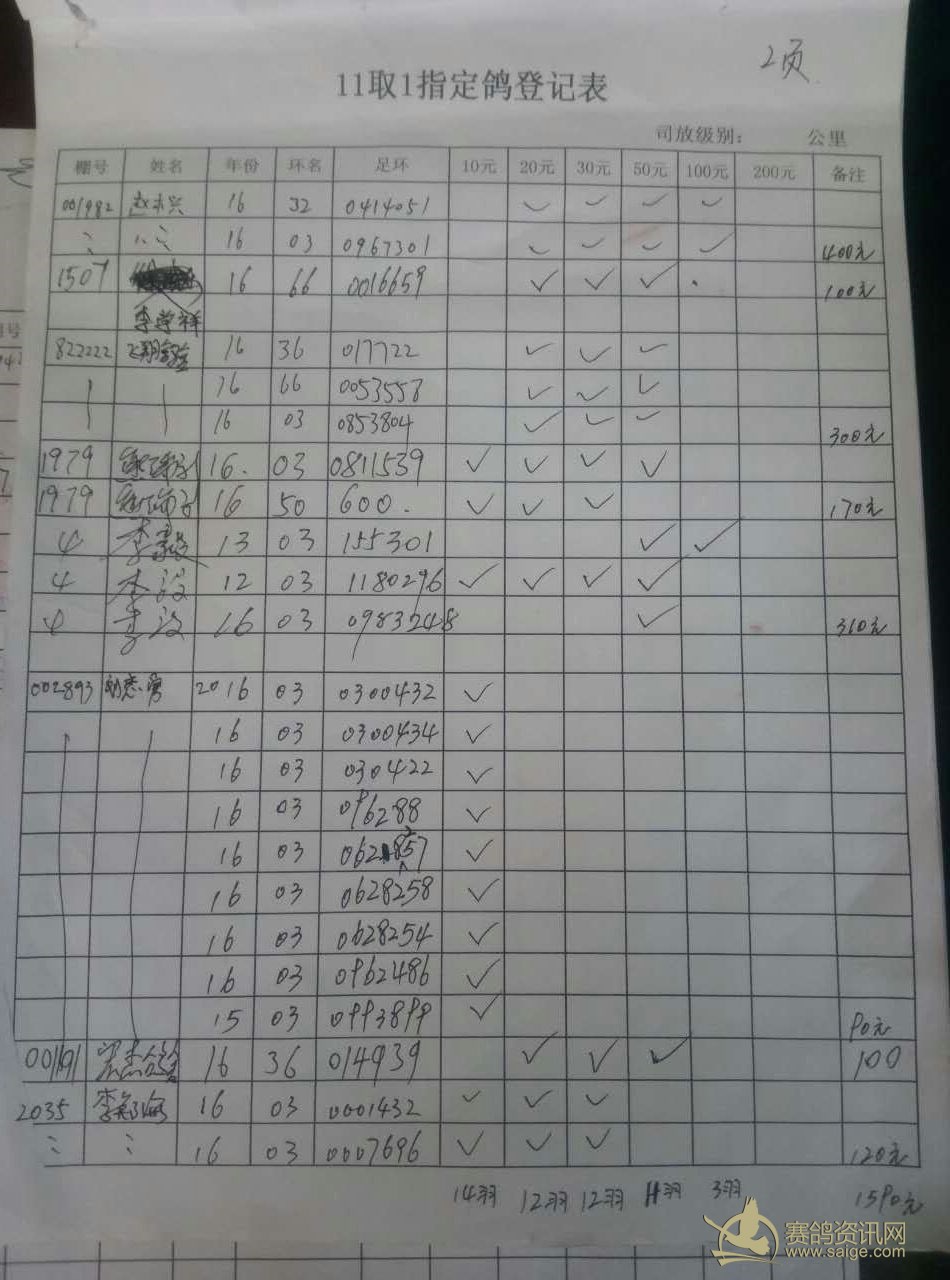 2页
11取1指定鸽登记表
司放级别: 公里
棚号 姓名 年份 环名 足环 10元 20元 30元 50元 100元 200元 备注
001982 赵 兴 16 32 0414051 ✓ ✓ ✓ ✓
16 03 0967301 ✓ ✓ ✓ ✓ 400元
1507 16 66 0016659 ✓ ✓ ✓ 100元
李学祥
822222 飞翔 16 36 017722 ✓ ✓ ✓
16 66 0053558 ✓ ✓ ✓
16 03 0853804 ✓ ✓ ✓ 300元
1979 16. 03 0811539 ✓ ✓ ✓ ✓
1979 16 50 600. ✓ ✓ ✓ 170元
4 李毅 13 03 155301 ✓ ✓
4 李 12 03 1180296 ✓ ✓ ✓ ✓
4 李 16 03 0983248 ✓ 310元
002893 刘志勇 2016 03 0300432 ✓
16 03 0300434 ✓
16 03 030422 ✓
16 03 096288 ✓
16 03 ✓
16 03 0628258 ✓
16 03 0628254 ✓
16 03 0962486 ✓
15 03 0993899 ✓ 90元
16 36 014939 ✓ ✓ ✓ 100
2035 李 海 16 03 0001432 ✓ ✓ ✓
16 03 0007696 ✓ ✓ ✓ 120元
14羽 12羽 12羽 11羽 3羽 1590元
赛鸽资讯网
www.saige.com